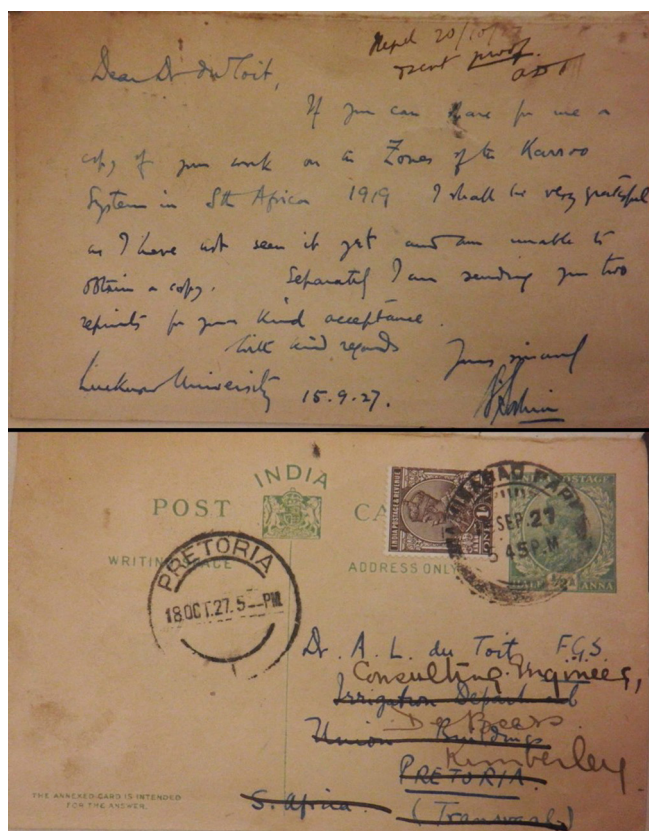 Repd 20/10/
sent proof.
Dear Dr du Toit,
If you can spare for me a
copy of your work on the Zones of the Karroo
System in Sth Africa 1919 I shall be very grateful
as I have not seen it yet and am unable to
obtain a copy. Separately I am sending you two
reprints for your kind acceptance.
With kind regards
Yours sincerely
Lucknow University 15.9.27.
INDIA
POST CA
WRITING SPACE
ADDRESS ONLY
INDIA POSTAGE & REVENUE
ONE
POSTAGE
HALF ANNA
PARK
SEP.27
5 45 P.M
PRETORIA
18.OCT.27.5--PM
Dr. A. L. du Toit, F.G.S
Consulting Engineer,
Irrigation Department
De Beers
Union Buildings
Kimberley
PRETORIA.
S. Africa. (Transvaal)
THE ANNEXED CARD IS INTENDED
FOR THE ANSWER.